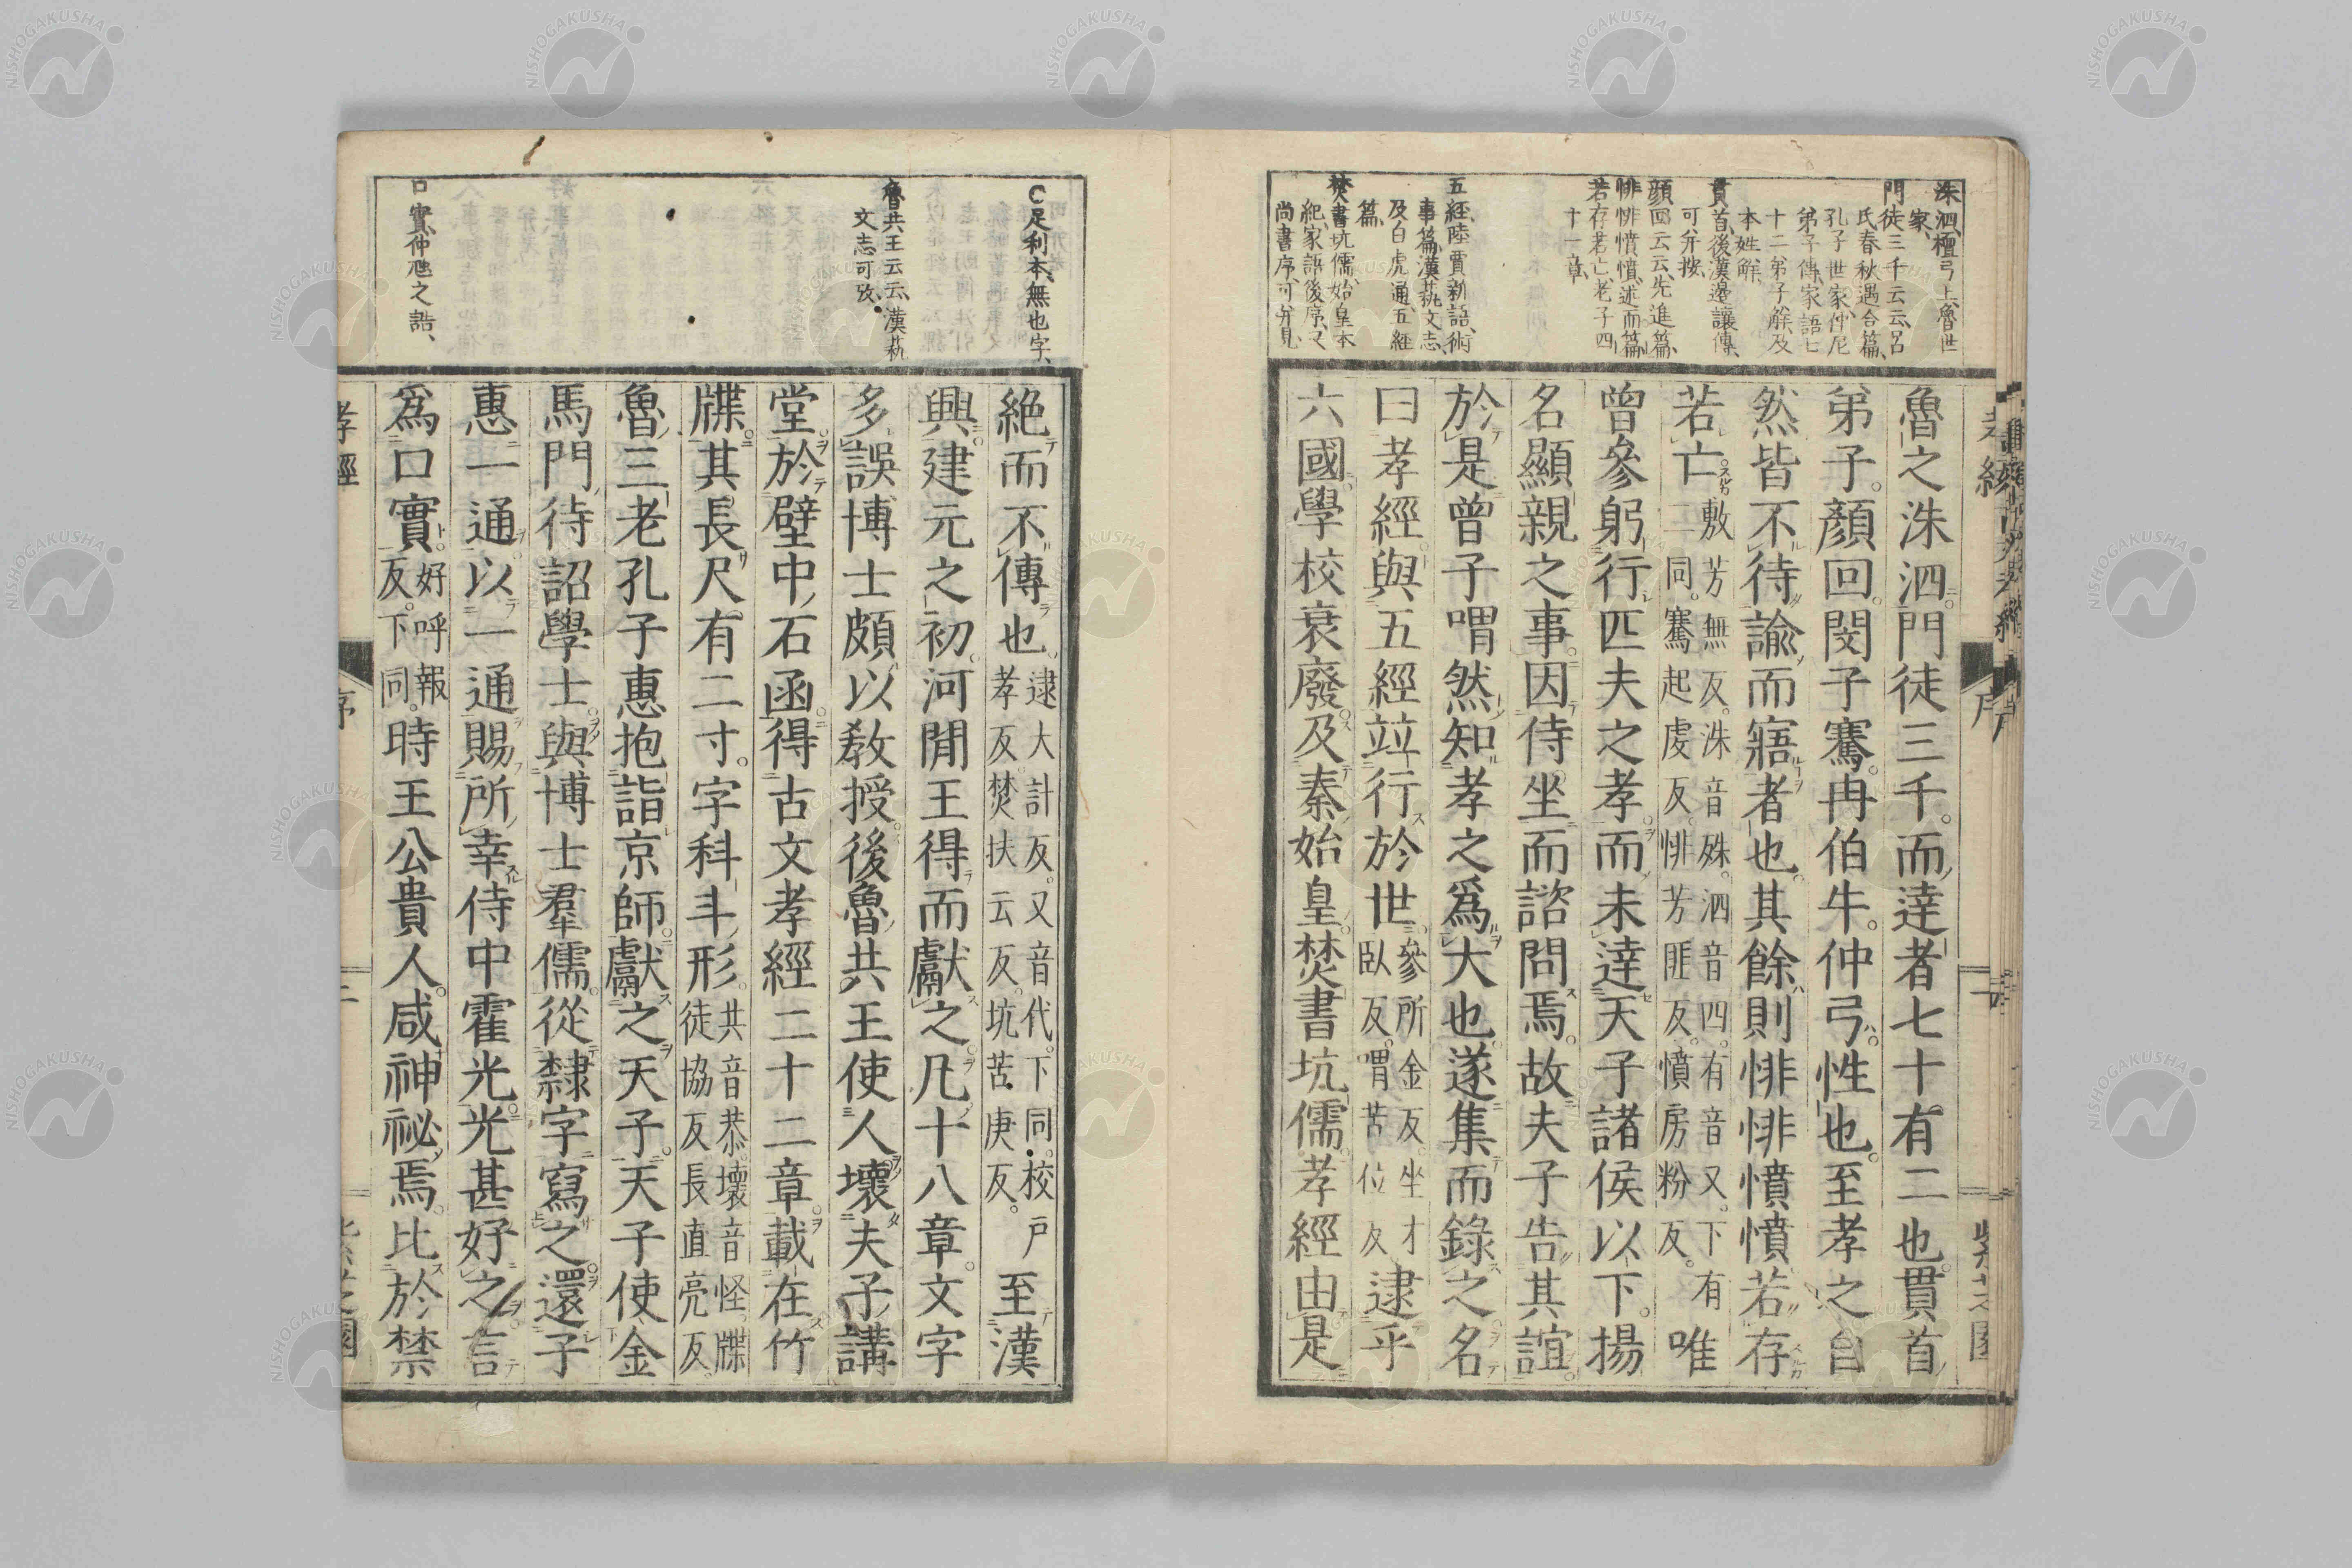 洙泗、檀弓上、魯世
家、
門徒三千云云、呂
氏春秋遇合篇、
孔子世家、仲尼
弟子傳、家語七
十二弟子解、及
本姓解、
貫首、後漢邊讓傳、
可并按、
顏回云云、先進篇、
悱悱憤憤、述而篇、
若存若亡、老子四
十一章、
五經、陸賈新語、術
事篇、漢蓺文志、
及白虎通五經
篇、
焚書坑儒、始皇本
紀、家語後序、又
尚書序、可并見、
魯之洙泗門徒三千。而達者七十有二也。貫首
弟子。顏回。閔子騫。冉伯牛。仲弓。性也。至孝之自
然皆不待諭而寤者也。其餘則悱悱憤憤若存
若亡
敷芳無反。洙音殊。泗音四。有音又。下有
同。騫起虔反。悱芳匪反。憤房粉反。
唯
曾參躬行匹夫之孝而未達天子諸侯以下。揚
名顯親之事。因侍坐而諮問焉。故夫子告其誼。
於是曾子喟然知孝之爲大也。遂集而錄之名
曰孝經與五經竝行於世。
參所金反。坐才
臥反。喟苦位反
逮乎
六國學校衰廢。及秦始皇焚書坑儒。孝經由是
孝經
序
紫芝園
C足利本、無也字、
魯共王云云、漢蓺
文志可攷、
口實、仲虺之誥、
絶而不傳也。
逮大計反。又音代。下同。校戶
孝反。焚扶云反。坑苦庚反。
至漢
興建元之初。河閒王得而獻之。凡十八章。文字
多誤。博士頗以教授。後魯共王使人壞夫子講
堂於壁中石函得古文孝經二十二章。載在竹
牒。其長尺有二寸。字科斗形。
共音恭。壞音怪。牒
徒協反。長直亮反。
魯三老孔子惠抱詣京師。獻之天子。天子使金
馬門待詔學士與博士羣儒。從隸字寫之。還子
惠一通。以一通賜所幸侍中霍光。光甚好之。言
爲口實。
好呼報
反。下同。
時王公貴人。咸神祕焉。比於禁
孝經
序
二
紫芝園